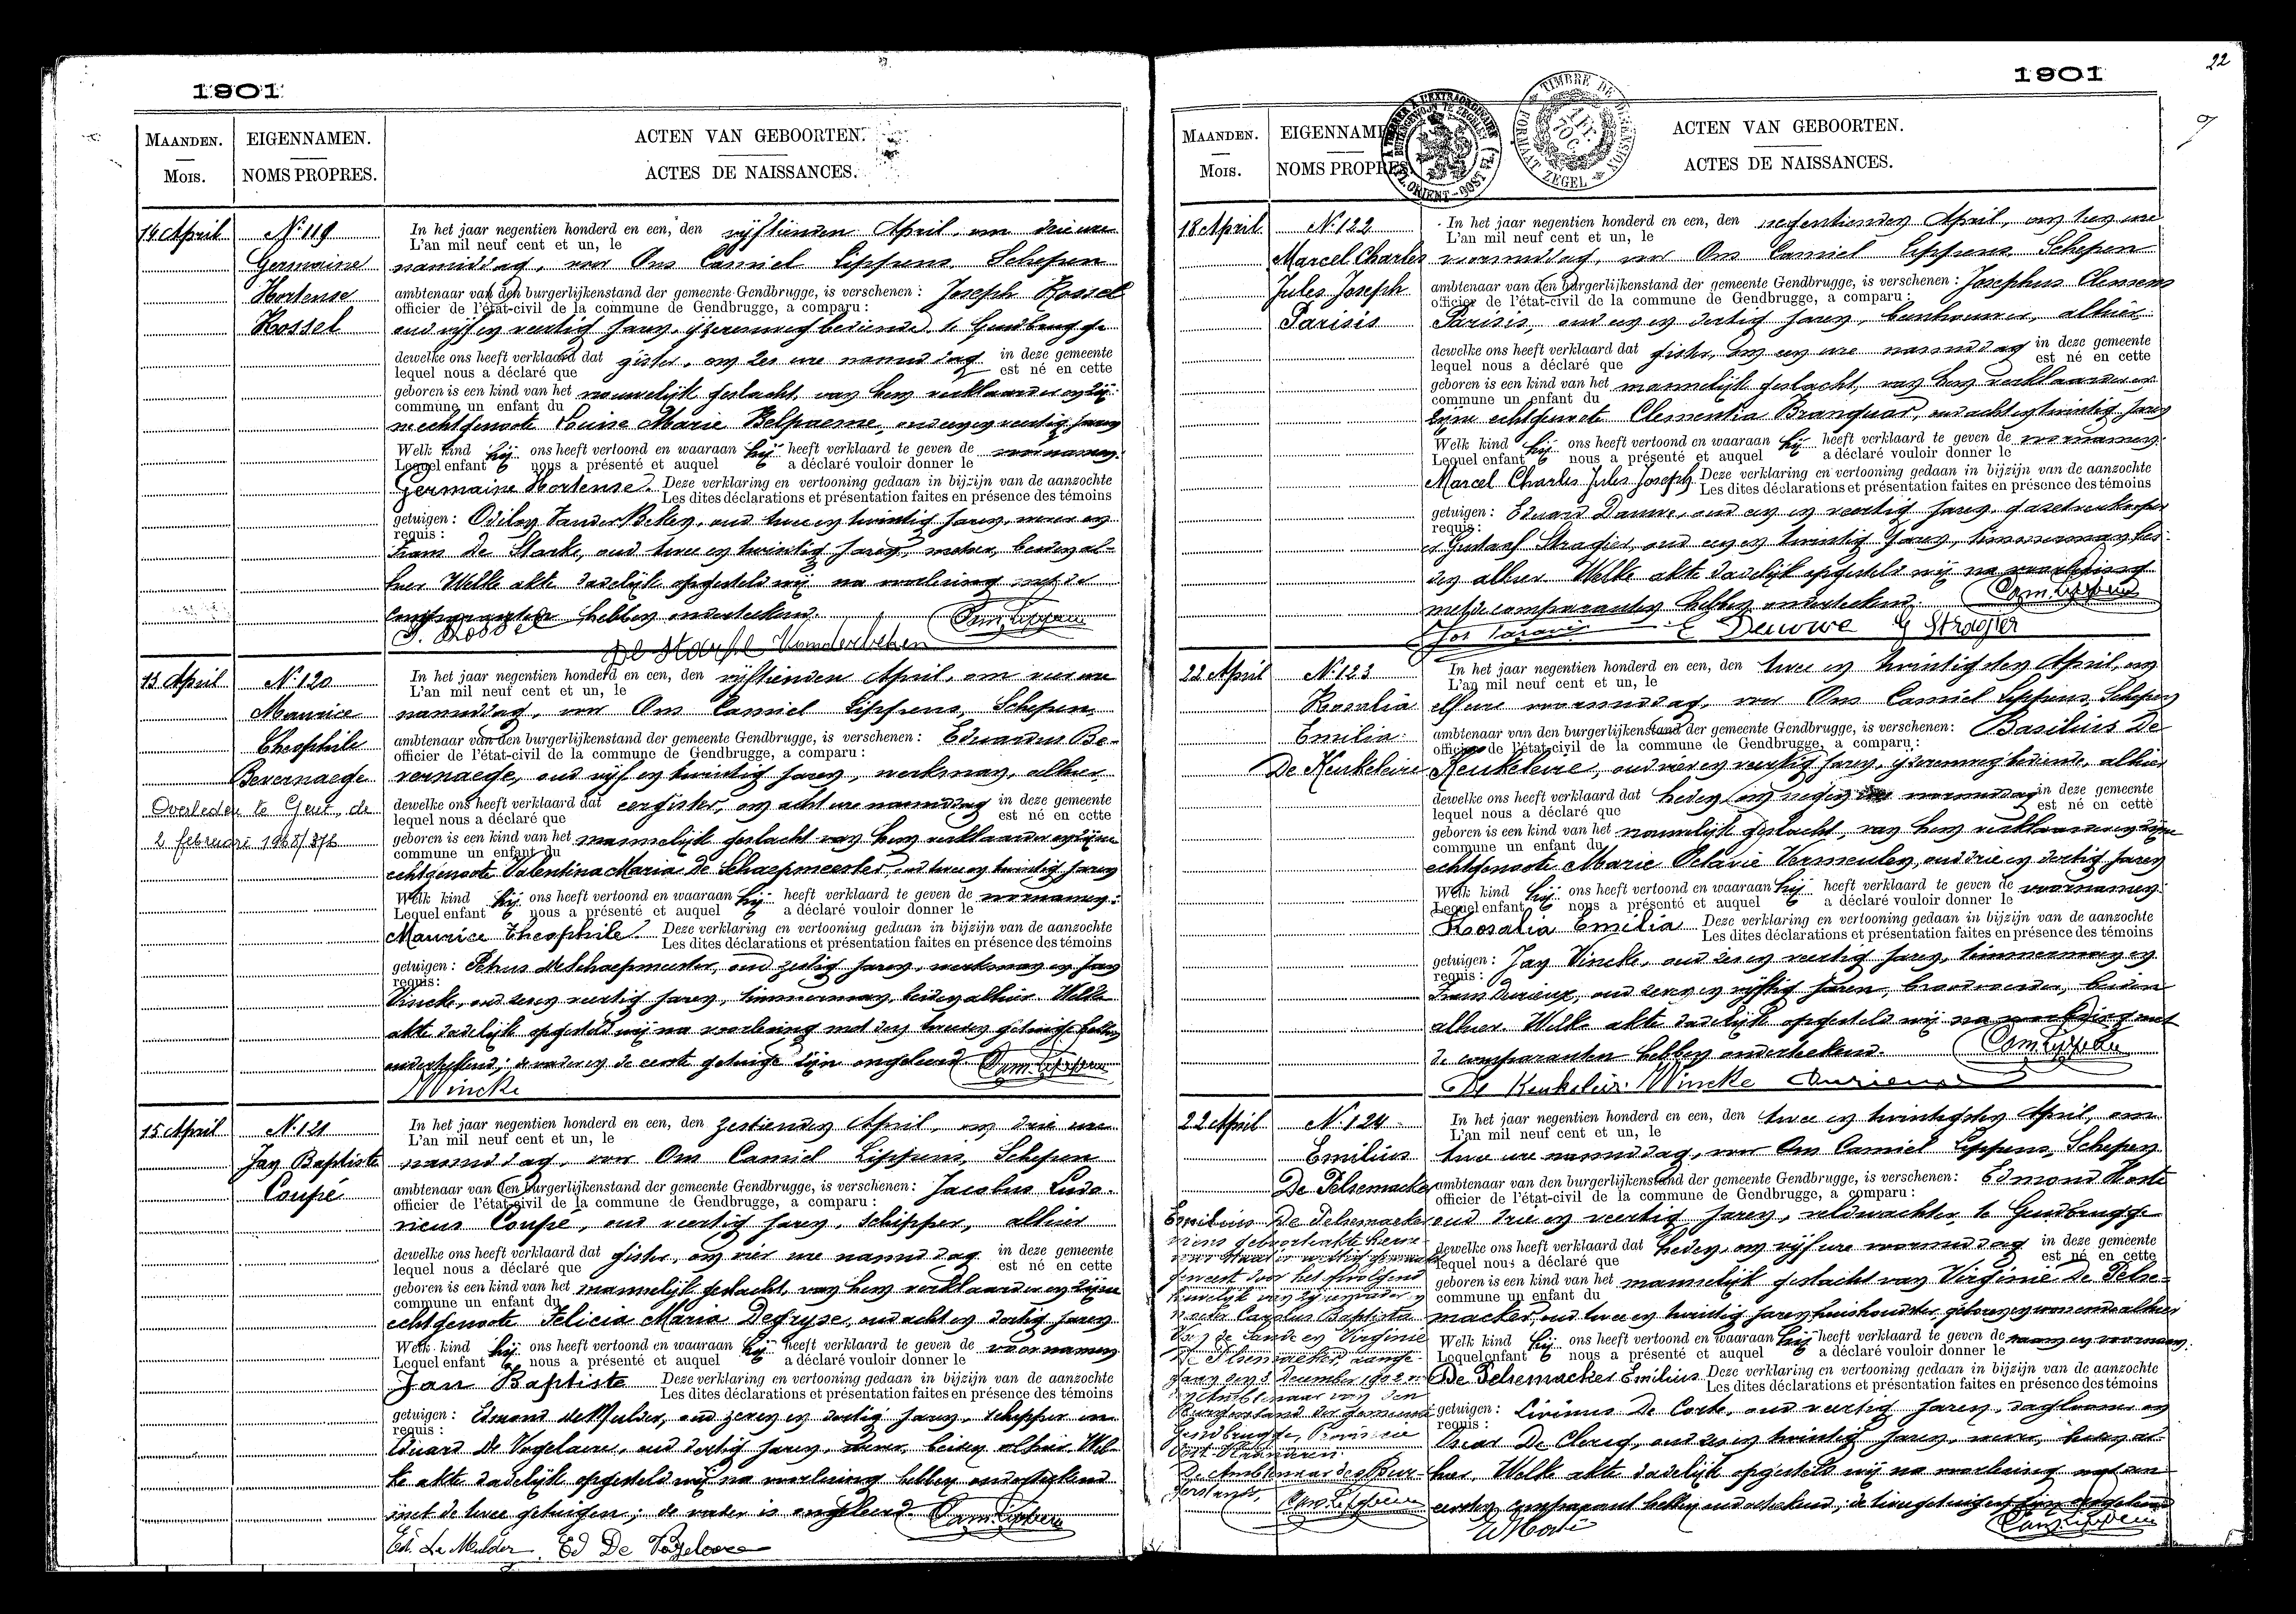 1901
MAANDEN.
Mois.
EIGENNAMEN.
NOMS PROPRES.
ACTEN VAN GEBOORTEN.
ACTES DE NAISSANCES.
14 April
No 119
Germaine
Hortense
Rossel
In het jaar negentien honderd en een, den vijftienden April, om drie ure
L'an mil neuf cent et un, le
namiddag, voor Ons Camiel Lippens, Schepen
ambtenaar van den burgerlijkenstand der gemeente Gendbrugge, is verschenen : Joseph Rossel
officier de l'état-civil de la commune de Gendbrugge, a comparu :
oud vijf en veertig jaren, ijzerenwegbediende, te Gendbrugge
dewelke ons heeft verklaard dat gister, om zes ure namiddag in deze gemeente
lequel nous a déclaré que est né en cette
geboren is een kind van het vrouwelijk geslacht, van hem verklaarder en zij-
commune un enfant du
ne echtgenoote Louise Marie Belpaeme, oud een en veertig jaren
Welk kind hij ons heeft vertoond en waaraan hij heeft verklaard te geven de voornamen:
Lequel enfant nous a présenté et auquel a déclaré vouloir donner le
Germaine Hortense. Deze verklaring en vertooning gedaan in bijzijn van de aanzochte
Les dites déclarations et présentation faites en présence des témoins
getuigen : Odilon VanderBeken, oud twee en twintig jaren, en
requis :
Frans De Sterke, oud twee en twintig jaren, beiden al-
hier Welke akte dadelijk opgesteld wij na voorlezing met de
comparanten hebben onderteekend. Cam. Lippens
J. Rossel
Vanderbeken
13 April
No 120
Maurice
Theophile
Bevernaege
Overleden te Gent, de
2 februari 1968/372
In het jaar negentien honderd en een, den vijftienden April, om vier ure
L'an mil neuf cent et un, le
namiddag, voor Ons Camiel Lippens, Schepen
ambtenaar van den burgerlijkenstand der gemeente Gendbrugge, is verschenen : Eduardus Be-
officier de l'état-civil de la commune de Gendbrugge, a comparu :
vernaege, oud vijf en twintig jaren, werkman, alhier
dewelke ons heeft verklaard dat eergister, om acht ure namiddag in deze gemeente
lequel nous a déclaré que est né en cette
geboren is een kind van het mannelijk geslacht van hem verklaarder en zijne
commune un enfant du
echtgenoote Valentina Maria De Schaepmeester, oud twee en twintig jaren
Welk kind hij ons heeft vertoond en waaraan hij heeft verklaard te geven de voornamen:
Lequel enfant nous a présenté et auquel a déclaré vouloir donner le
Maurice Theophile. Deze verklaring en vertooning gedaan in bijzijn van de aanzochte
Les dites déclarations et présentation faites en présence des témoins
getuigen : Petrus deSchaepmeester, oud zestig jaren, werkman en Jan
requis :
Vincke, oud zes en veertig jaren, timmerman, beiden alhier. Welke
akte dadelijk opgesteld wij na voorlezing met den tweeden getuige hebben
onderteekend; de vader en de eerste getuige zijn ongeleerd. Cam. Lippens
JVincke
15 April
No 121
Jan Baptiste
Coupé
In het jaar negentien honderd en een, den zestienden April, om drie ure
L'an mil neuf cent et un, le
namiddag, voor Ons Camiel Lippens, Schepen
ambtenaar van den burgerlijkenstand der gemeente Gendbrugge, is verschenen : Jacobus Ludo-
officier de l'état-civil de la commune de Gendbrugge, a comparu :
vicus Coupé, oud veertig jaren, schipper, alhier
dewelke ons heeft verklaard dat gister, om vier ure namiddag in deze gemeente
lequel nous a déclaré que est né en cette
geboren is een kind van het mannelijk geslacht, van hem verklaarder en zijne
commune un enfant du
echtgenoote Felicia Maria Degryse, oud acht en dertig jaren
Welk kind hij ons heeft vertoond en waaraan hij heeft verklaard te geven de voornamen
Lequel enfant nous a présenté et auquel a déclaré vouloir donner le
Jan Baptiste Deze verklaring en vertooning gedaan in bijzijn van de aanzochte
Les dites déclarations et présentation faites en présence des témoins
getuigen : Edmond deMulder, oud zeven en dertig jaren, schipper en
requis :
Eduard De Vogelaere, oud dertig jaren, beiden alhier. Wel-
ke akte dadelijk opgesteld wij na voorlezing hebben onderteekend
met de twee getuigen; de vader is ongeleerd. Cam. Lippens
Ed. De Mulder Ed De Vogelaere
1901
22
MAANDEN.
Mois.
EIGENNAMEN
NOMS PROPRES
TIMBRE DE DIMENSION
FORMAAT ZEGEL
ACTEN VAN GEBOORTEN.
ACTES DE NAISSANCES.
18 April
No 122
Marcel Charles
Jules Joseph
Parisis
In het jaar negentien honderd en een, den negentienden April, om tien ure
L'an mil neuf cent et un, le
voormiddag, voor Ons Camiel Lippens, Schepen
ambtenaar van den burgerlijkenstand der gemeente Gendbrugge, is verschenen : Josephus Clemens
officier de l'état-civil de la commune de Gendbrugge, a comparu :
Parisis, oud een en dertig jaren, alhier
dewelke ons heeft verklaard dat gister, om een ure namiddag in deze gemeente
lequel nous a déclaré que est né en cette
geboren is een kind van het mannelijk geslacht, van hem verklaarder en
commune un enfant du
zijne echtgenoote Clementia Branquar, oud acht en twintig jaren
Welk kind hij ons heeft vertoond en waaraan hij heeft verklaard te geven de voornamen:
Lequel enfant nous a présenté et auquel a déclaré vouloir donner le
Marcel Charles Jules Joseph. Deze verklaring en vertooning gedaan in bijzijn van de aanzochte
Les dites déclarations et présentation faites en présence des témoins
getuigen : Eduard Dauwe, oud een en veertig jaren,
requis :
en Gustaaf Stragier, oud een en twintig jaren, timmerman bei-
den alhier. Welke akte dadelijk opgesteld wij na voorlezing
met de comparanten hebben onderteekend. Cam. Lippens
E Dauwe G Stragier
22 April
No 123
Rosalia
Emilia
De Keukeleire
In het jaar negentien honderd en een, den twee en twintigsten April, om
L'an mil neuf cent et un, le
elf ure voormiddag, voor Ons Camiel Lippens, Schepen
ambtenaar van den burgerlijkenstand der gemeente Gendbrugge, is verschenen : Basilius De
officier de l'état-civil de la commune de Gendbrugge, a comparu :
Keukeleire, oud vier en veertig jaren, ijzerenwegbediende, alhier
dewelke ons heeft verklaard dat heden, om negen ure voormiddag in deze gemeente
lequel nous a déclaré que est né en cette
geboren is een kind van het vrouwelijk geslacht, van hem verklaarder en zijne
commune un enfant du
echtgenoote Marie Octavie Vermeulen, oud drie en dertig jaren
Welk kind hij ons heeft vertoond en waaraan hij heeft verklaard te geven de voornamen:
Lequel enfant nous a présenté et auquel a déclaré vouloir donner le
Rosalia Emilia Deze verklaring en vertooning gedaan in bijzijn van de aanzochte
Les dites déclarations et présentation faites en présence des témoins
getuigen : Jan Vincke, oud zes en veertig jaren, timmerman en
requis :
Frans Durieux, oud zeven en vijftig jaren, beiden
alhier. Welke akte dadelijk opgesteld wij na voorlezing met
de comparanten hebben onderteekend. Cam. Lippens
De Keukeleire JVincke Durieux
22 April
No 124
Emilius
De Pelsemacker
Emilius De Pelsemacker
wiens geboorteakte hierne-
geweest door het
huwelijk van zijn vader en
moeder Carolus Baptista
Van de Sande en Virginie
De Pelsemacker, aange-
gaan den December 1902
Ambtenaar van den
Burgerstand der gemeente
Gendbrugge, Provincie
Oost-Vlaanderen.
De Ambtenaar des Bur-
gerstands, Cam. Lippens
In het jaar negentien honderd en een, den twee en twintigsten April, om
L'an mil neuf cent et un, le
twee ure namiddag, voor Ons Camiel Lippens, Schepen
ambtenaar van den burgerlijkenstand der gemeente Gendbrugge, is verschenen : Edmond Horte
officier de l'état-civil de la commune de Gendbrugge, a comparu :
oud drie en veertig jaren, veldwachter, te Gendbrugge
dewelke ons heeft verklaard dat heden, om vijf ure voormiddag in deze gemeente
lequel nous a déclaré que est né en cette
geboren is een kind van het mannelijk geslacht van Virginie De Pelse-
commune un enfant du
macker, oud twee en twintig jaren, huishoudster, geboren en wonende alhier
Welk kind hij ons heeft vertoond en waaraan hij heeft verklaard te geven de naam en voornaam:
Lequel enfant nous a présenté et auquel a déclaré vouloir donner le
De Pelsemacker Emilius Deze verklaring en vertooning gedaan in bijzijn van de aanzochte
Les dites déclarations et présentation faites en présence des témoins
getuigen : Livinus De Corte, oud veertig jaren, daglooner en
requis :
Oscar De Clercq, oud zes en twintig jaren, beiden al-
hier. Welke akte dadelijk opgesteld wij na voorlezing met den
eersten comparant hebben onderteekend; de twee getuigen zijn ongeleerd
Cam. Lippens